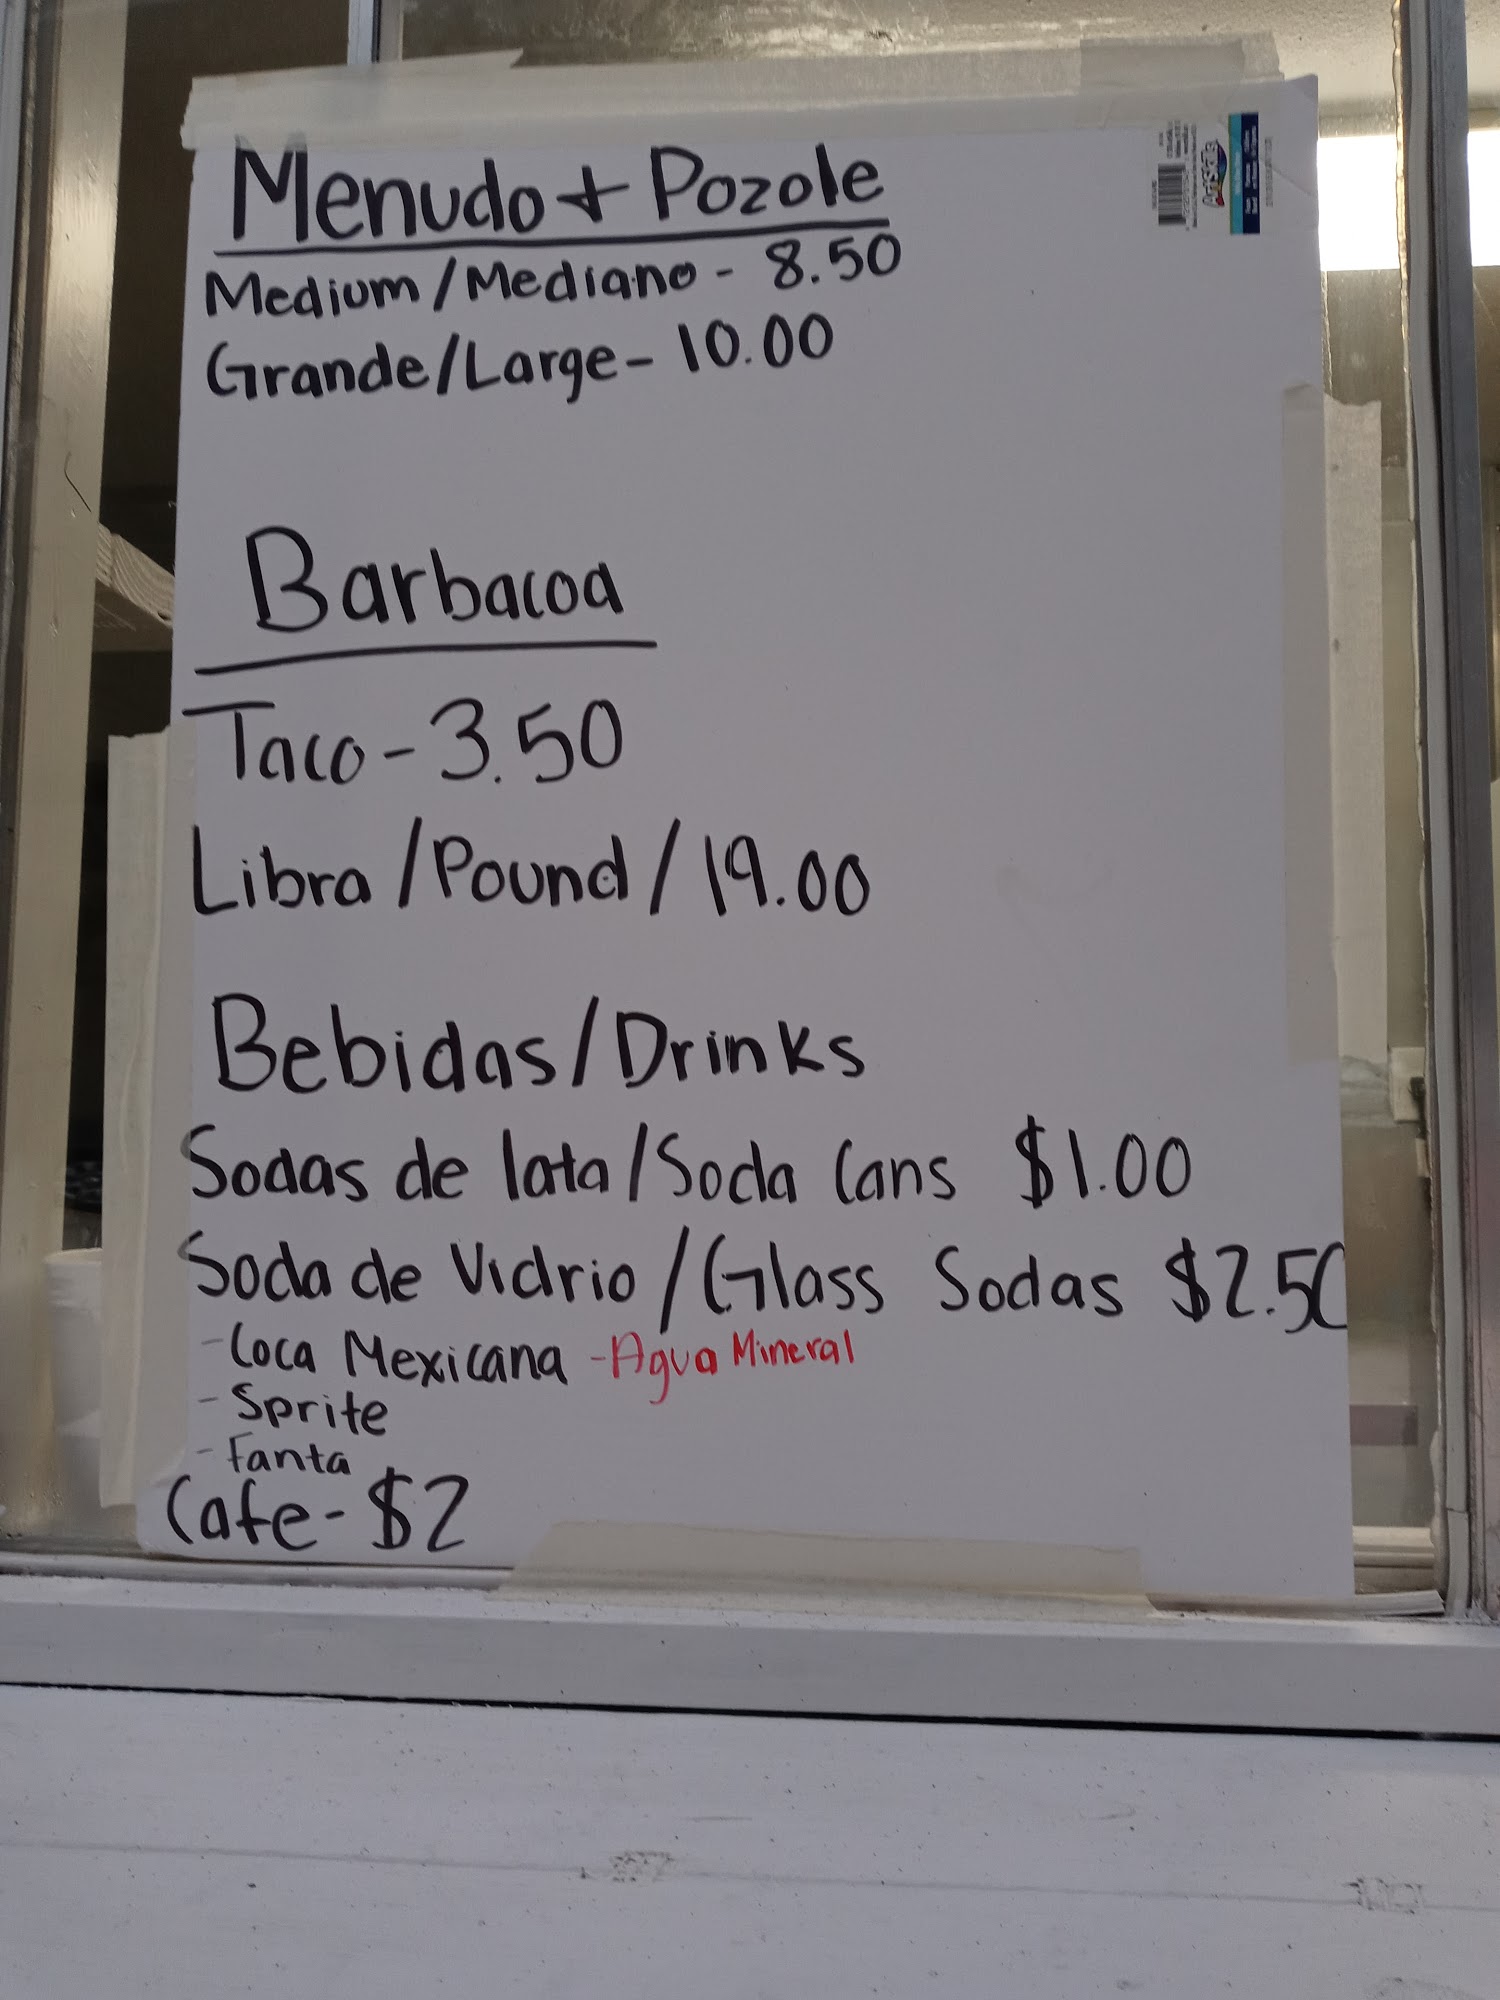 Menudo + Pozole
Medium/Mediano - 8.50
Grande/Large - 10.00
Barbacoa
Taco - 3.50
Libra/Pound/19.00
Bebidas/Drinks
Sodas de lata/Soda Cans $1.00
Soda de Vidrio/Glass Sodas $2.50
- Coca Mexicana - Agua Mineral
- Sprite
- Fanta
Cafe - $2
ArtSkills